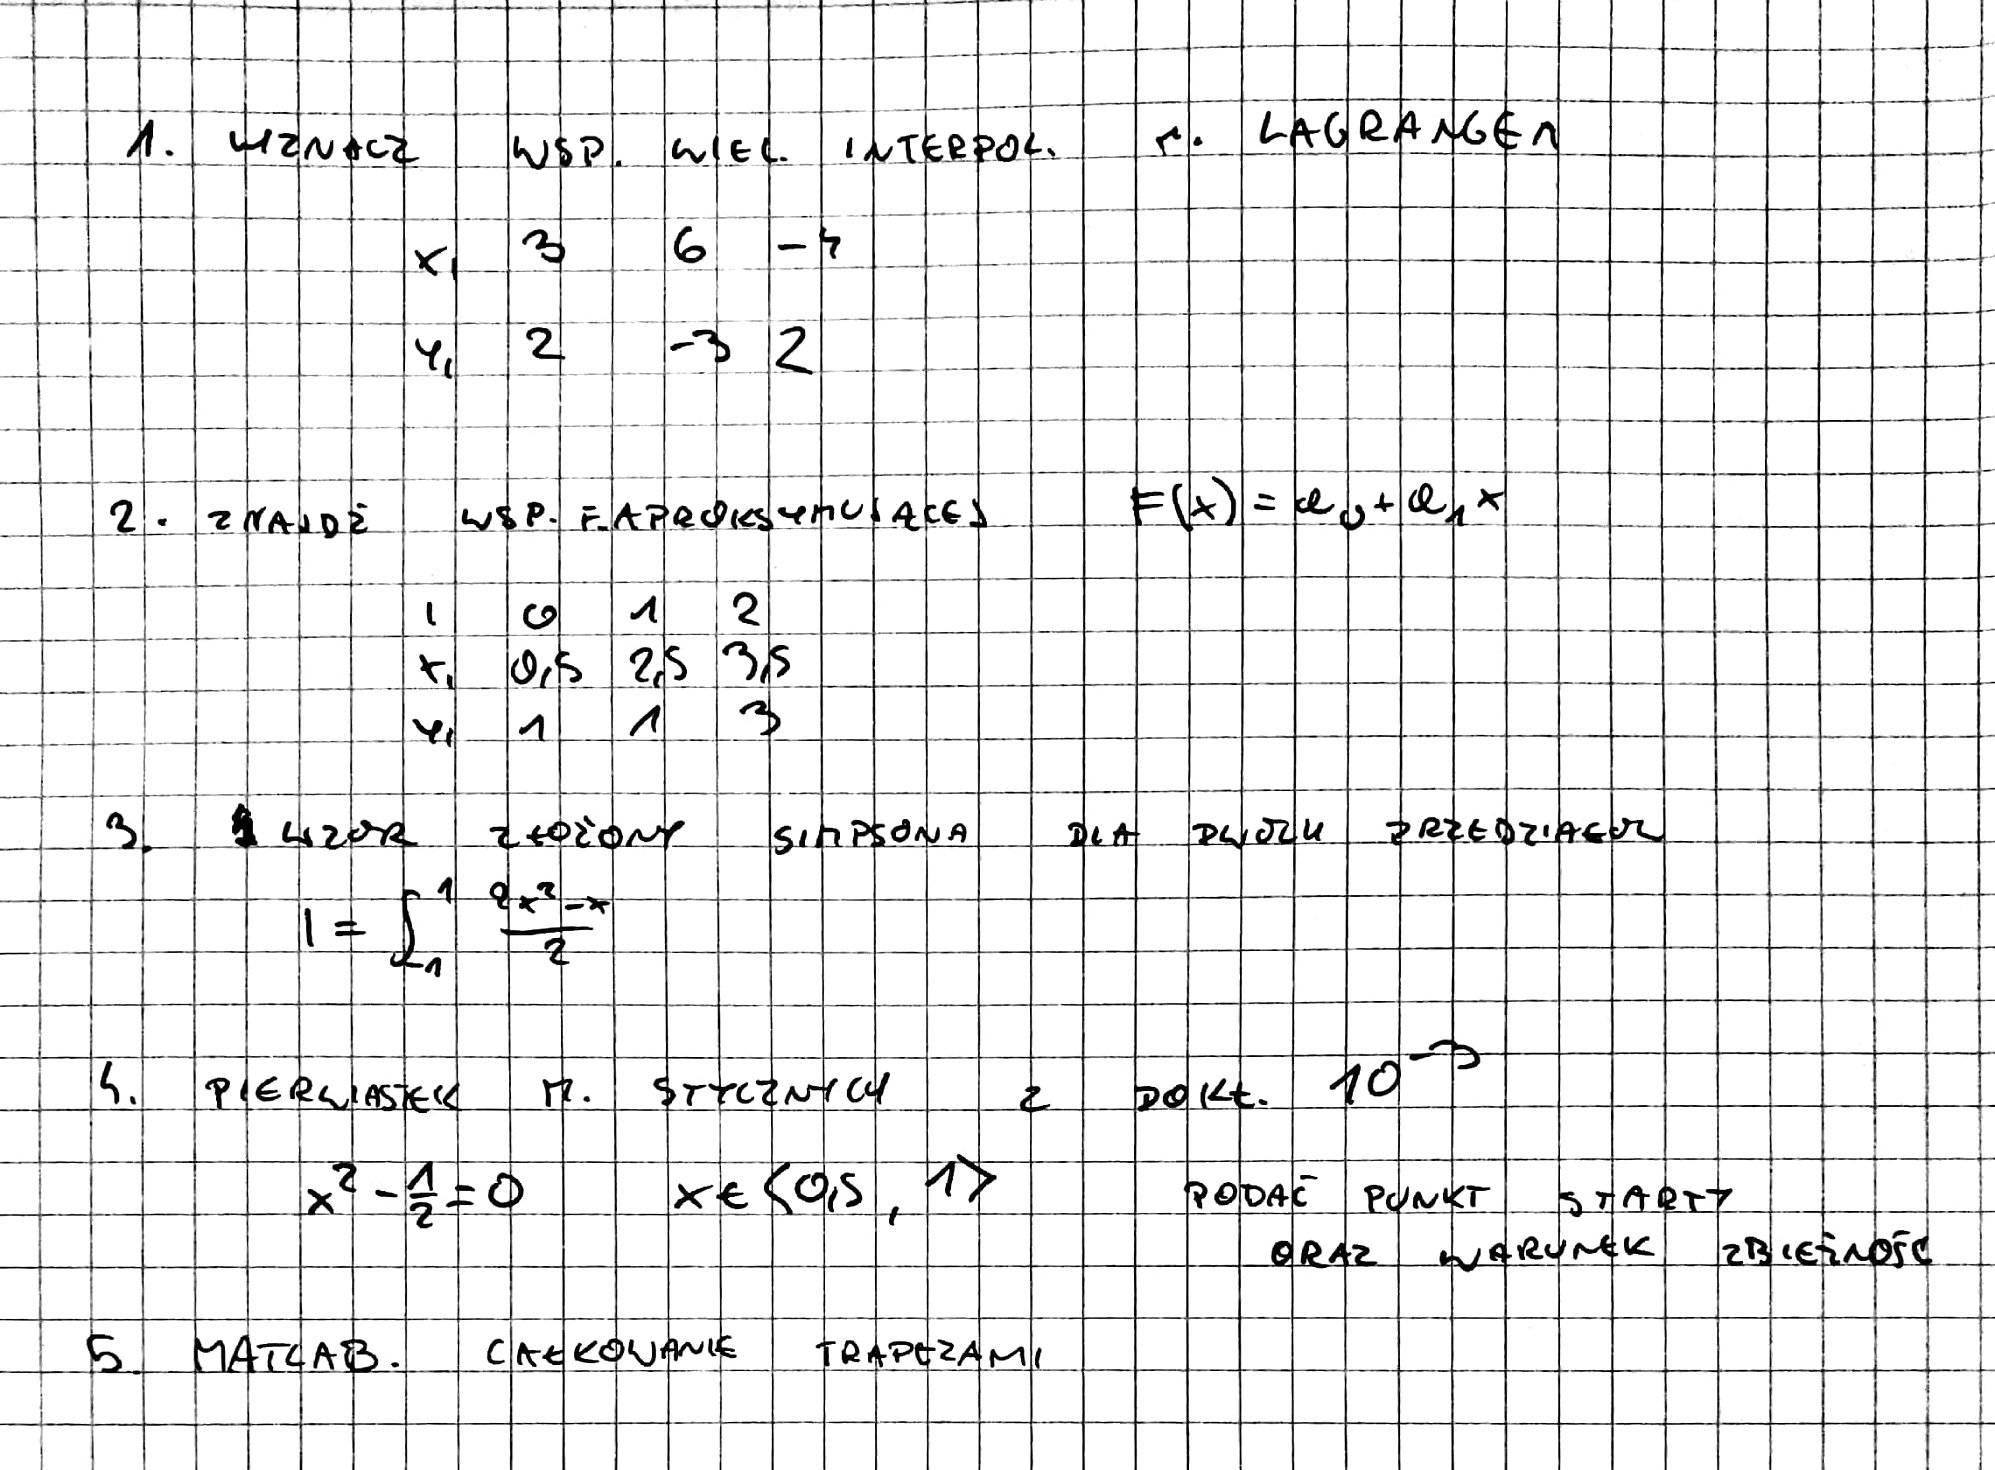 1. WYZNACZ WSP. WIEL. INTERPOL. M. LAGRANGEA
xi 3 6 -4
yi 2 -3 2
2. ZNAJDŹ WSP. F. APROKSYMUJĄCEJ F(x) = a0 + a1x
i 0 1 2
xi 0,5 2,5 3,5
yi 1 1 3
3. WZÓR ZŁOŻONY SIMPSONA DLA DWÓCH PRZEDZIAŁÓW
I = ∫_-1^1 (2x²-x)/2
4. PIERWIASTEK M. STYCZNYCH Z DOKŁ. 10^-3
x² - 1/2 = 0 x ∈ <0,5, 1> PODAĆ PUNKT STARTY
ORAZ WARUNEK ZBIEŻNOŚC
5. MATLAB. CAŁKOWANIE TRAPEZAMI